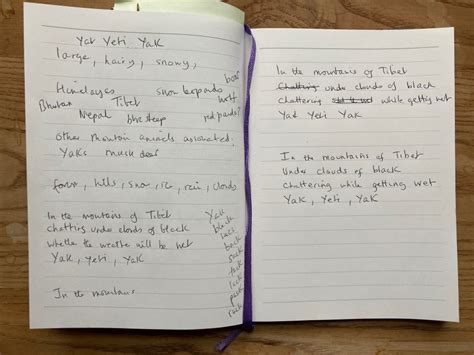 Yat Yeti Yak
large, hairy, snowy,
bear
Himalayas snow leopards wolf
Bhutan Tibet red pandas?
Nepal blue sheep
other mountain animals associated.
Yaks musk deer
forest, hills, snow, ice, rain, clouds
In the mountains of Tibet
chatting under clouds of black
whether the weather will be wet
Yak, Yeti, Yak
In the mountains
Yak
black
back
lack
pack
In the mountains of Tibet
Chatting under clouds of black
chattering while getting wet
Yat Yeti Yak
In the mountains of Tibet
Under clouds of black
chattering while getting wet
Yak, Yeti, Yak